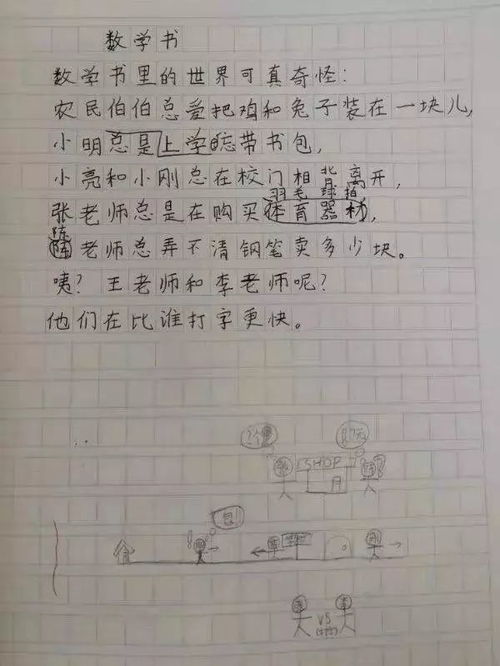 数学书
数学书里的世界可真奇怪：
农民伯伯总爱把鸡和兔子装在一块儿，
小明总是上学忘带书包，
小亮和小刚总在校门相背离开，
羽毛球拍
张老师总是在购买体育器材，
陈老师总弄不清钢笔卖多少块。
咦？王老师和李老师呢？
他们在比谁打字更快。
SHOP
包
VS